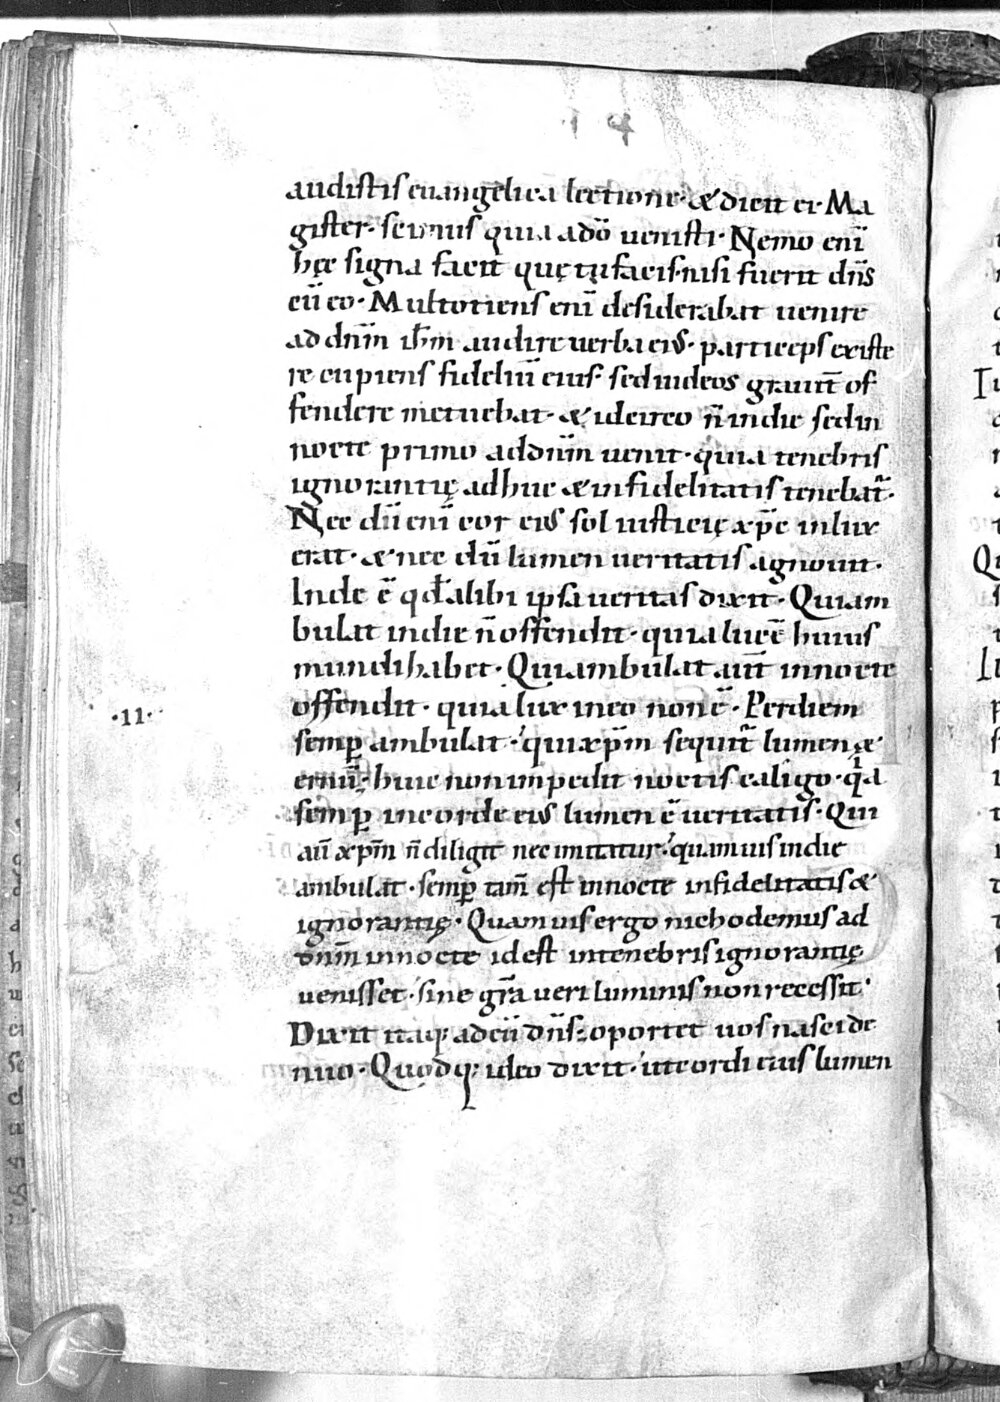 audistis euangelica lectione· & dicit ei· Ma
gister· scimus quia a dō uenisti· Nemo enī
hęc signa facit quę tu facis· nisi fuerit dn̄s
cū eo· Multotiens enī desiderabat uenire
ad dn̄m ih̄m audire uerba eius· particeps existe
re cupiens fidelium eius· sed iudeos grauit̄ of
fendere metuebat· & idcirco n̄ in die sed in
nocte primo ad dn̄m uenit· quia tenebris
ignorantię adhuc & infidelitatis tenebat̄·
Nec dū enī cor eius sol iusticię xp̄c inlux
erat· & nec dū lumen ueritatis agnouit·
Inde ē qđ alibi ipsa ueritas dixit· Qui am
bulat in die n̄ offendit· quia lucē huius
mundi habet· Qui ambulat aut̄ in nocte
offendit· quia lux in eo non ē· Per diem
semp̱ ambulat· qui xp̄m sequit̄ lumen æ
ternū· huic non impedit noctis caligo· q̇a
semp̱ in corde eius lumen ē ueritatis· Qui
aū xp̄m n̄ diligit nec imitatur· quamuis in die
ambulat· semp̱ tam̄ est in nocte infidelitatis &
ignorantię· Quamuis ergo nichodemus ad
dn̄m in nocte id est in tenebris ignorantię
uenisset· sine gr̄a ueri luminis non recessit·
·11·
Dixit itaq; ad eū dn̄s· oportet uos nasci de
nuo· Quod q; ideo dixit· ut cordi eius lumen